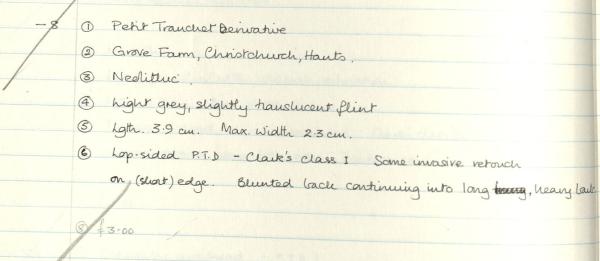 -8 ① Petit Tranchet Derivative
② Grove Farm, Christchurch, Hants.
③ Neolithic.
④ Light grey, slightly translucent flint
⑤ Lgth. 3.9 cm. Max. Width 2.3 cm.
⑥ Lop-sided P.T.D - Clark's class I Some invasive retouch
on (short) edge. Blunted back continuing into long, heavy
⑧ £3.00